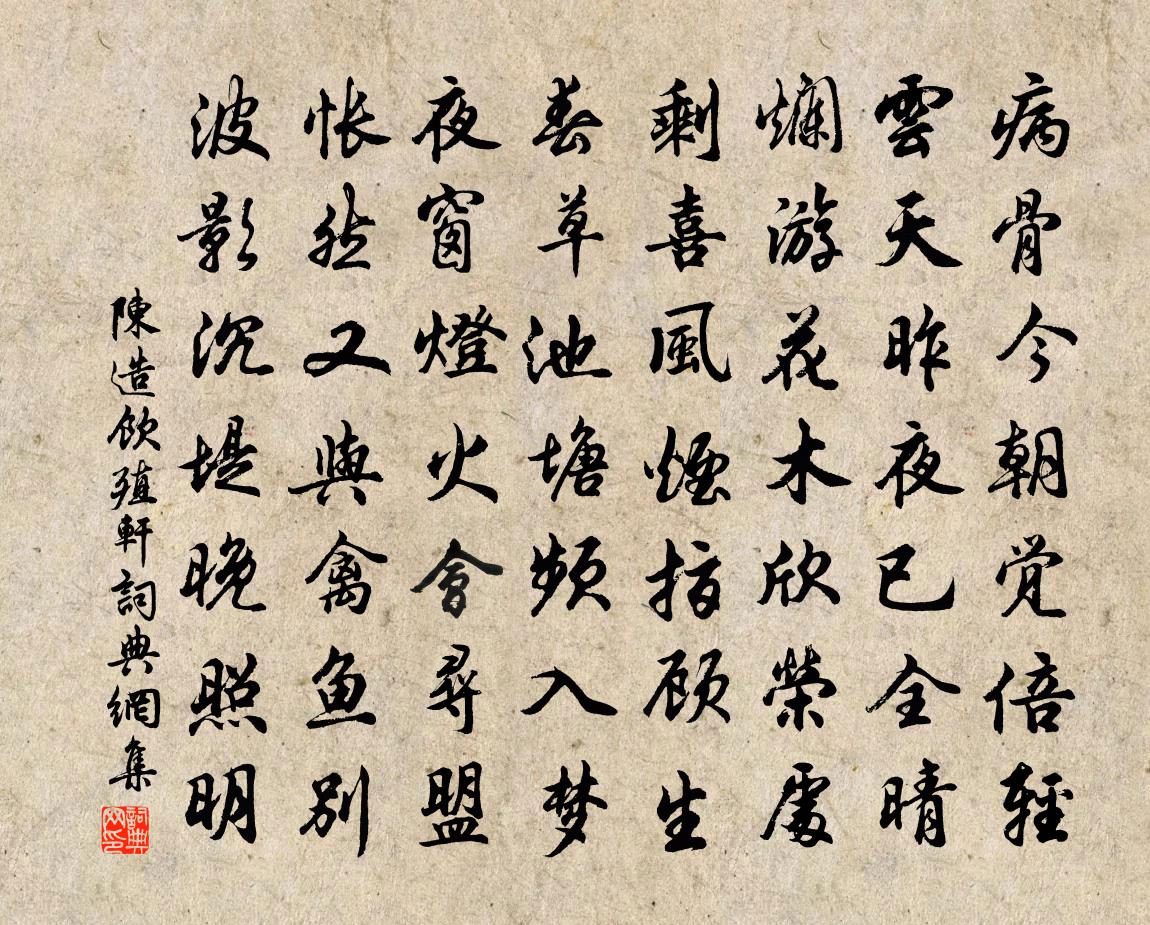 病骨今朝觉倍轻
雲天昨夜已全晴
爛游花木欣榮處
剩喜風煙指顾生
春草池塘频入梦
夜窗燈火會尋盟
怅然又與禽鱼别
波影沉堤晚照明
陳造飲殖軒詞典網集
詞典网印